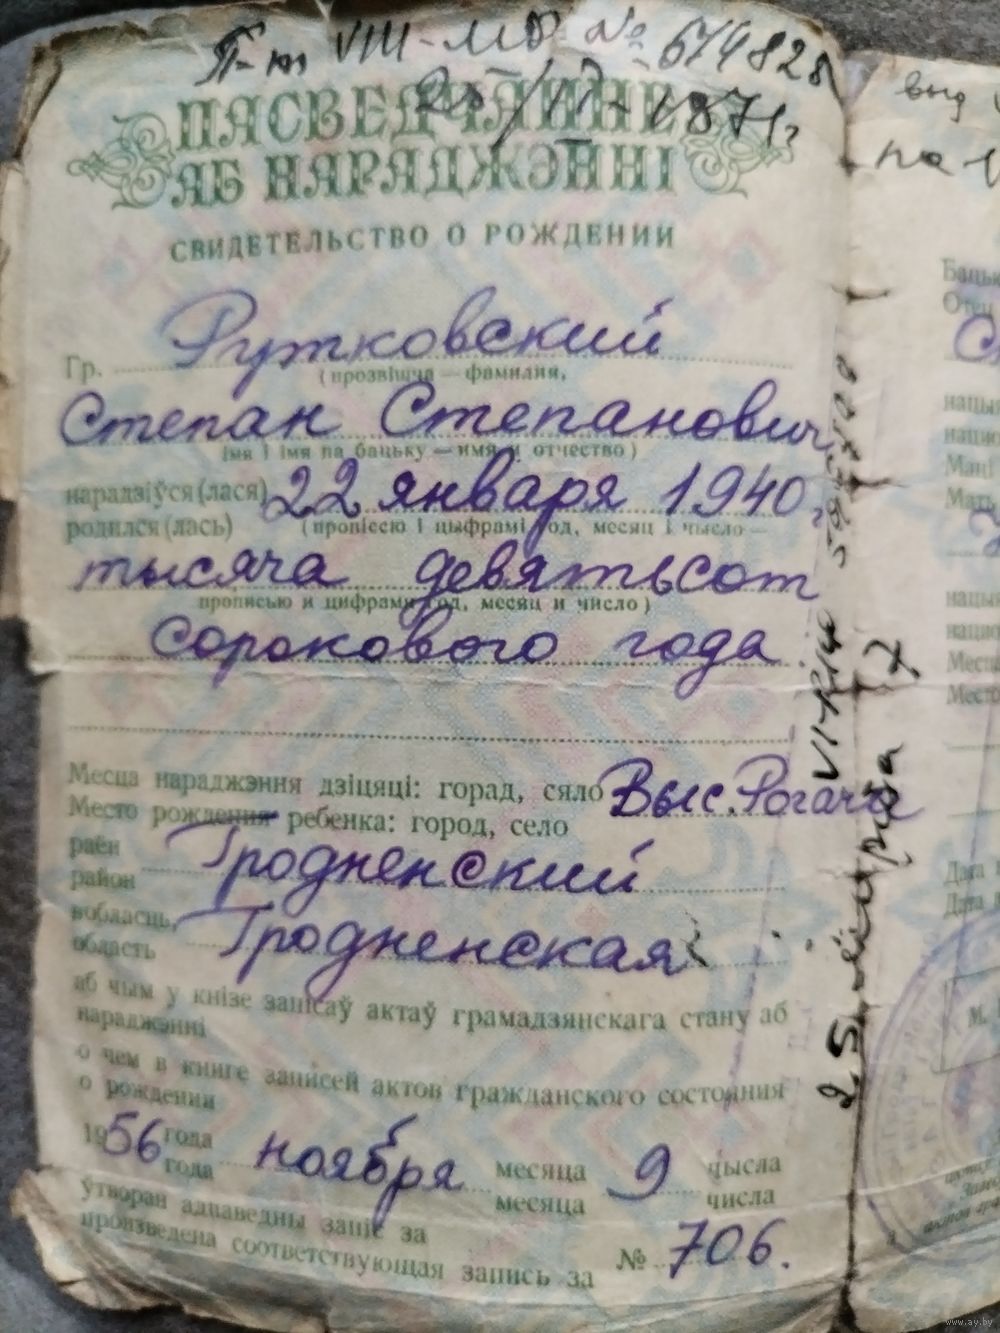 П-т VIII-МБ № 614828
ПАСВЕДЧАННЕ
АБ НАРАДЖЭННІ
СВИДЕТЕЛЬСТВО О РОЖДЕНИИ
Гр. Рутковский
(прозвішча — фамилия,
Степан Степанович
імя і імя па бацьку — имя и отчество)
нарадзіўся(лася) 22 января 1940 г.
родился(лась) (пропіссю і цыфрамі год, месяц і чысло —
тысяча девятьсот
прописью и цифрами год, месяц и число)
сорокового года
Месца нараджэння дзіцяці: горад, сяло Выс. Рогачи
Место рождения ребенка: город, село
раён
район Гродненский
вобласць,
область Гродненская
аб чым у кнізе запісаў актаў грамадзянскага стану аб
нараджэнні
о чем в книге записей актов гражданского состояния
о рождении
1956 года ноября месяца 9 чысла
года месяца числа
ўтворан адпаведны запіс за
произведена соответствующая запись за № 706.
25 марта
выд
на
Бацьк
Отец
нацы
нацио
Маці
Мать
нацы
нацио
Месц
Мест
Дата
Дата
М.
www.ay.by